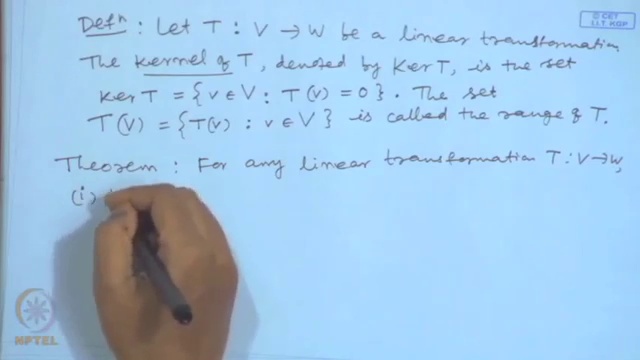 © CET
I.I.T. KGP
Defⁿ : Let T : V → W be a linear transformation
The Kernel of T, denoted by Ker T, is the set
Ker T = {v ∈ V : T(v) = 0}. The set
T(V) = {T(v) : v ∈ V} is called the range of T.
Theorem : For any linear transformation T : V → W,
(i)
NPTEL